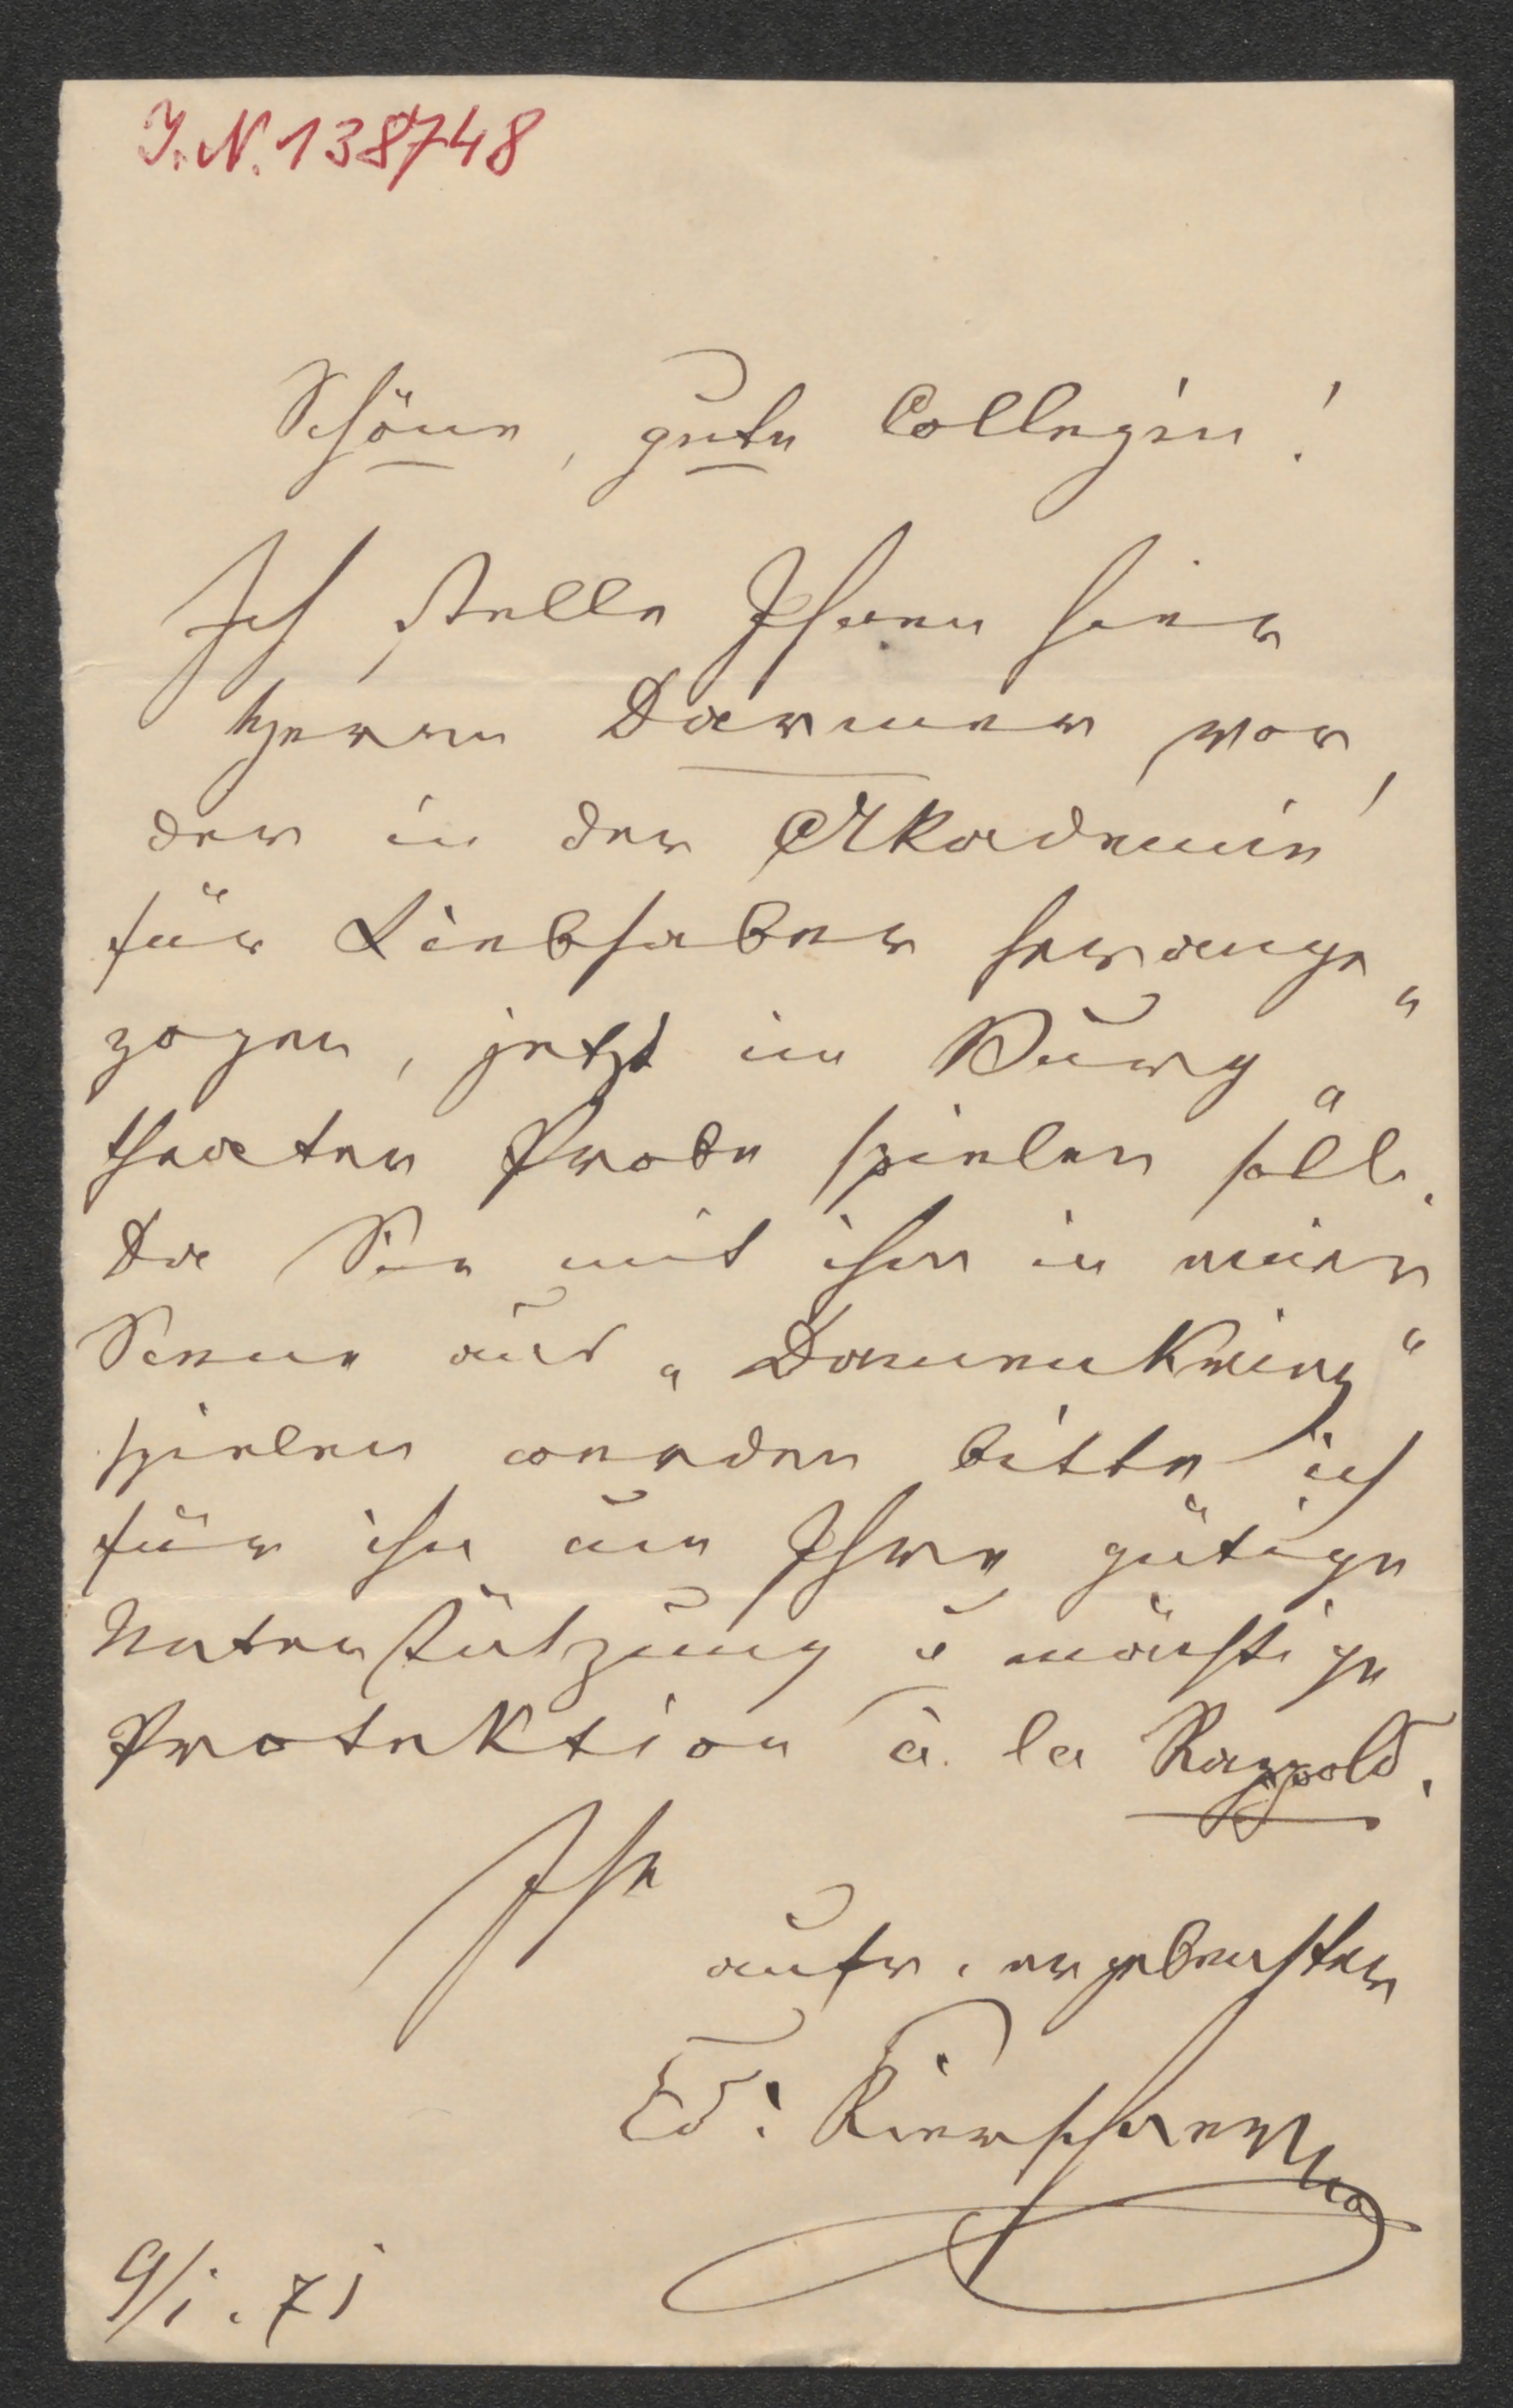 J. N. 138748
Schöne, gute Collegin!
Ich stelle Ihnen hier
Herrn Darmer vor,
der in der Akademie
für Liebhaber herange„
zogen, jetzt im Burg„
theater Probe spielen soll.
Da Sie mit ihm in einer
Scene aus „Damenkrieg“
spielen werden bitte ich
für ihn um Ihre gütige
Unterstützung u mächtige
Protektion à la Rappold.
Ihr
aufr. ergebenster
Ed: Kierschner
9/1. 71